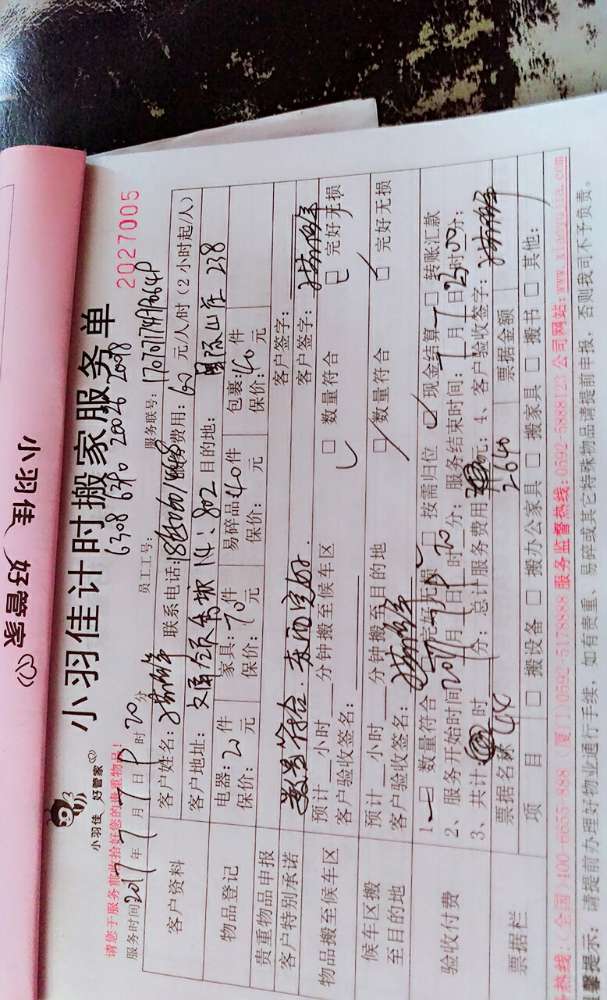 小羽佳 好管家
小羽佳 好管家
小羽佳计时搬家服务单
2027005
6308 6390 20026 2098
请您于服务前收拾好您的贵重物品!
服务时间 2017年7月7日 时20分 员工工号: 服务联号:
客户资料
客户姓名: 联系电话: 服务费用:60元/人/时(2小时起/人)
客户地址: 14:802 目的地:国际山庄 238
物品登记
电器:2件 家具:70件 易碎品:40件 包裹:40件
保价: 元 保价: 元 保价: 元 保价: 元
贵重物品申报
客户特别承诺
数量符合 东西完好. 客户签字:
物品搬至候车区
预计 小时 分钟搬至候车区 □ 数量符合 □ 完好无损
客户验收签名: 客户签字:
候车区搬至目的地
预计 小时 分钟搬至目的地 □ 数量符合 □ 完好无损
客户验收签名:
验收付费
1、□ 数量符合 □ 完好无损 □ 按需归位 □ 现金结算 □ 转账汇款
2、服务开始时间:2017年7月7日 时20分; 服务结束时间:7月7日23时00分;
3、共计 时 分; 总计服务费用 元; 4、客户验收签字:
票据栏
票据名称 2640 票据金额
项 目 □ 搬设备 □ 搬办公家具 □ 搬家具 □ 搬书 □ 其他:
热线:(全国)400-6655-888 (厦门)0592-5178888 服务监督热线:0592-5888123 公司网站:www.xiaoyujia.com
温馨提示: 请提前办理好物业通行手续, 如有贵重、易碎或其它特殊物品请提前申报, 否则我司不予负责。